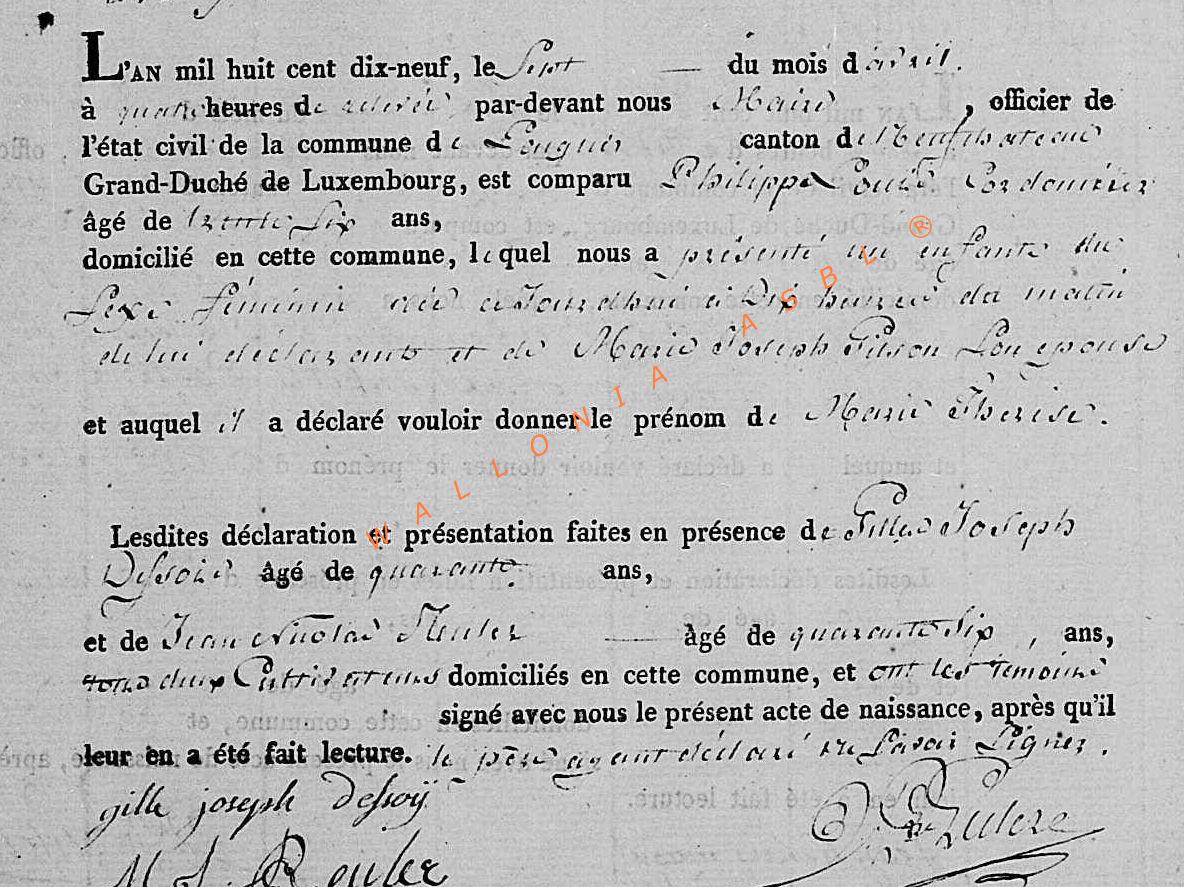 L'AN mil huit cent dix-neuf, le Sept du mois d'avril.
à quatre heures de relevée par-devant nous Maire, officier de
l'état civil de la commune de Longlier canton de Neufchateau
Grand-Duché de Luxembourg, est comparu Philippe Cordonnier
âgé de trente Six ans,
domicilié en cette commune, lequel nous a présenté un enfante du
Sexe féminin née aujourdhui à Dix heures du matin
de lui déclarante et de Marie Joseph Son epouse
et auquel il a déclaré vouloir donner le prénom de Marie Thérese.
Lesdites déclaration et présentation faites en présence de Gilles Joseph
Dessoie âgé de quarante ans,
et de Jean Nicolas âgé de quarante Six, ans,
tous deux Cultivateurs domiciliés en cette commune, et ont les temoins
signé avec nous le présent acte de naissance, après qu'il
leur en a été fait lecture. le père ayant déclaré ne Savoir Signer.
gille joseph dessoÿ
WALLONIA ASBL ®